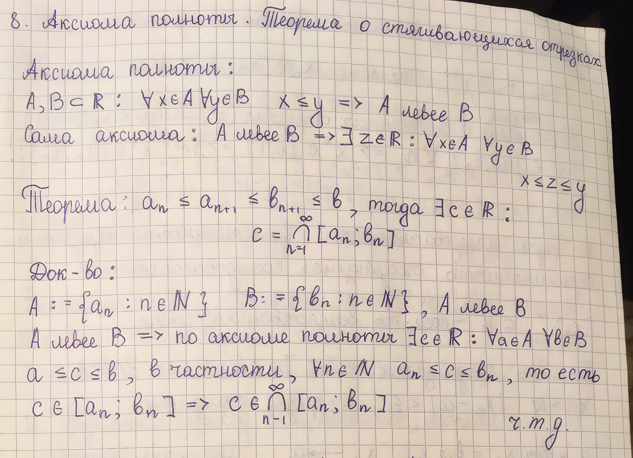 8. Аксиома полноты. Теорема о стягивающихся отрезках
Аксиома полноты:
A, B ⊂ ℝ : ∀x∈A ∀y∈B x ≤ y => A левее B
Сама аксиома: A левее B => ∃ z∈ℝ : ∀x∈A ∀y∈B
x ≤ z ≤ y
Теорема: aₙ ≤ aₙ₊₁ ≤ bₙ₊₁ ≤ b, тогда ∃c∈ℝ :
∞
c = ∩ [aₙ; bₙ]
n=1
Док-во:
A := {aₙ : n∈ℕ} B := {bₙ : n∈ℕ}, A левее B
A левее B => по аксиоме полноты ∃c∈ℝ : ∀a∈A ∀b∈B
a ≤ c ≤ b, в частности, ∀n∈ℕ aₙ ≤ c ≤ bₙ, то есть
∞
c ∈ [aₙ; bₙ] => c ∈ ∩ [aₙ; bₙ]
n-1
ч.т.д.